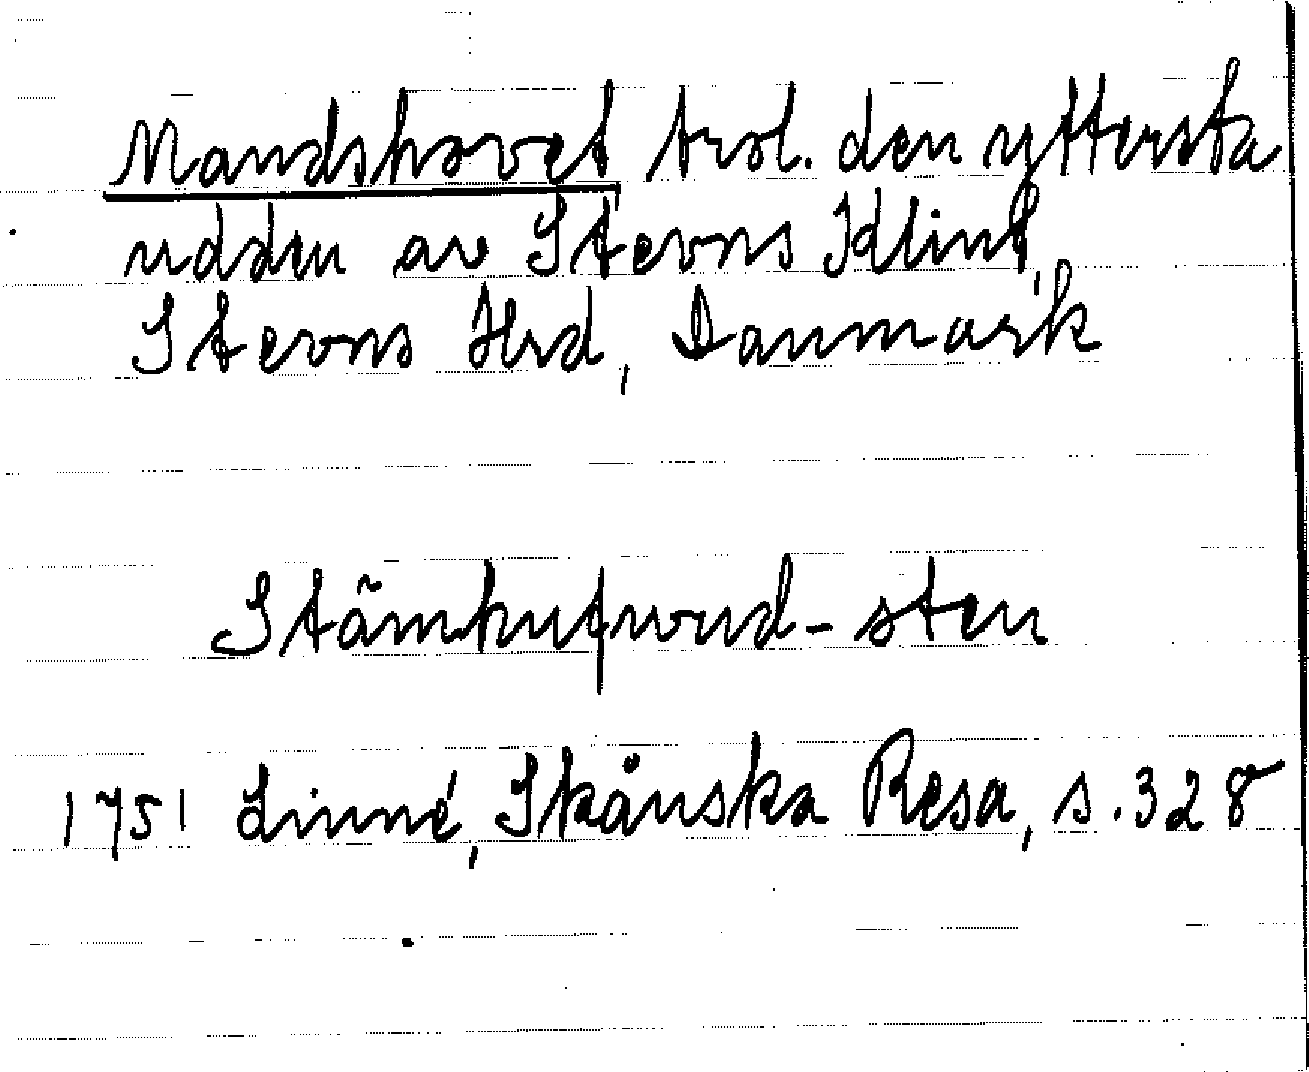 Mandshovet trol. den yttersta
udden av Stevns Klint,
Stevns Hrd, Danmark
-sten
1751 Linné, Skånska Resa, s. 328